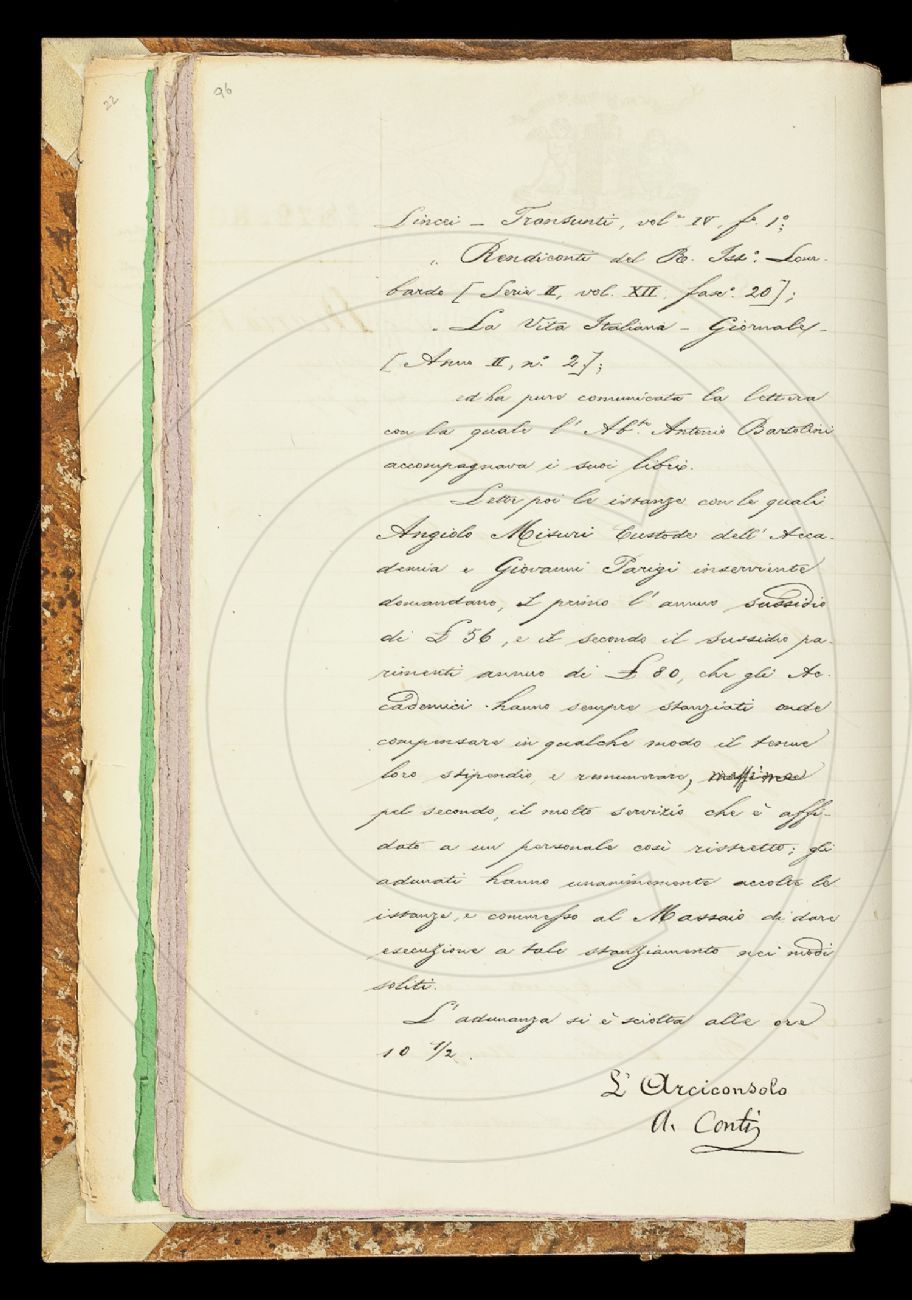 22
96
Lincei – Transunti, vol.e IV, f.e 1º;
„ Rendiconti del R. Isto. Lom-
bardo [Serie II, vol. XII, fasc.º 20];
„ La Vita Italiana – Giornale –
[Anno II, n.º 2];
ed ha pure comunicata la lettera
con la quale l' Ab.te Antonio Bartolini
accompagnava i suoi libri.
Lette poi le istanze con le quali
Angiolo Misuri Custode dell' Acca-
demia e Giovanni Parigi inserviente
domandano, il primo l' annuo sussidio
di £ 56, e il secondo il sussidio pa-
rimenti annuo di £ 80, che gli Ac-
cademici hanno sempre stanziati onde
compensare in qualche modo il tenue
loro stipendio, e remunerare,
pel secondo, il molto servizio che è affi-
dato a un personale così ristretto; gli
adunati hanno unanimemente accolte le
istanze, e commesso al Massaio di dare
esecuzione a tale stanziamento nei modi
soliti.
L' adunanza si è sciolta alle ore
10 1/2.
L' Arciconsolo
A. Conti